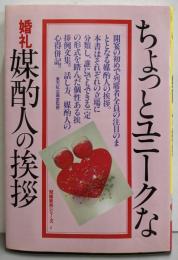 ちょっとユニークな
婚礼 媒酌人の挨拶
開宴の初めで列席者全員の注目のま
ととなる媒酌人の挨拶。
本書はそれぞれの立場に
分類し、誰にでもできる一定
の形式を踏んだ個性ある挨
拶例文集。話し方、媒酌人の
心得併記。